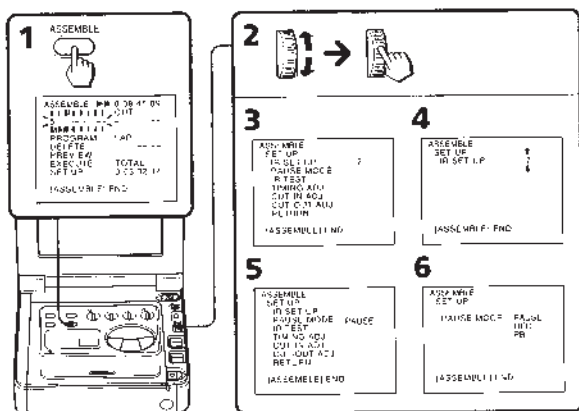 1
ASSEMBLE
ASSEMBLE 0:08:41:09
CUT
PROGRAM
DELETE
PREVIEW
EXECUTE TOTAL
SET UP
[ASSEMBLE] END
2
3
ASSEMBLE
SET UP
IR SET UP 2
PAUSE MODE
IR TEST
TIMING ADJ
CUT IN ADJ
CUT OUT ADJ
RETURN
[ASSEMBLE] END
4
ASSEMBLE
SET UP
IR SET UP
[ASSEMBLE] END
5
ASSEMBLE
SET UP
IR SET UP
PAUSE MODE PAUSE
IR TEST
TIMING ADJ
CUT IN ADJ
CUT OUT ADJ
RETURN
[ASSEMBLE] END
6
ASSEMBLE
SET UP
PAUSE MODE PAUSE
REC
PB
[ASSEMBLE] END